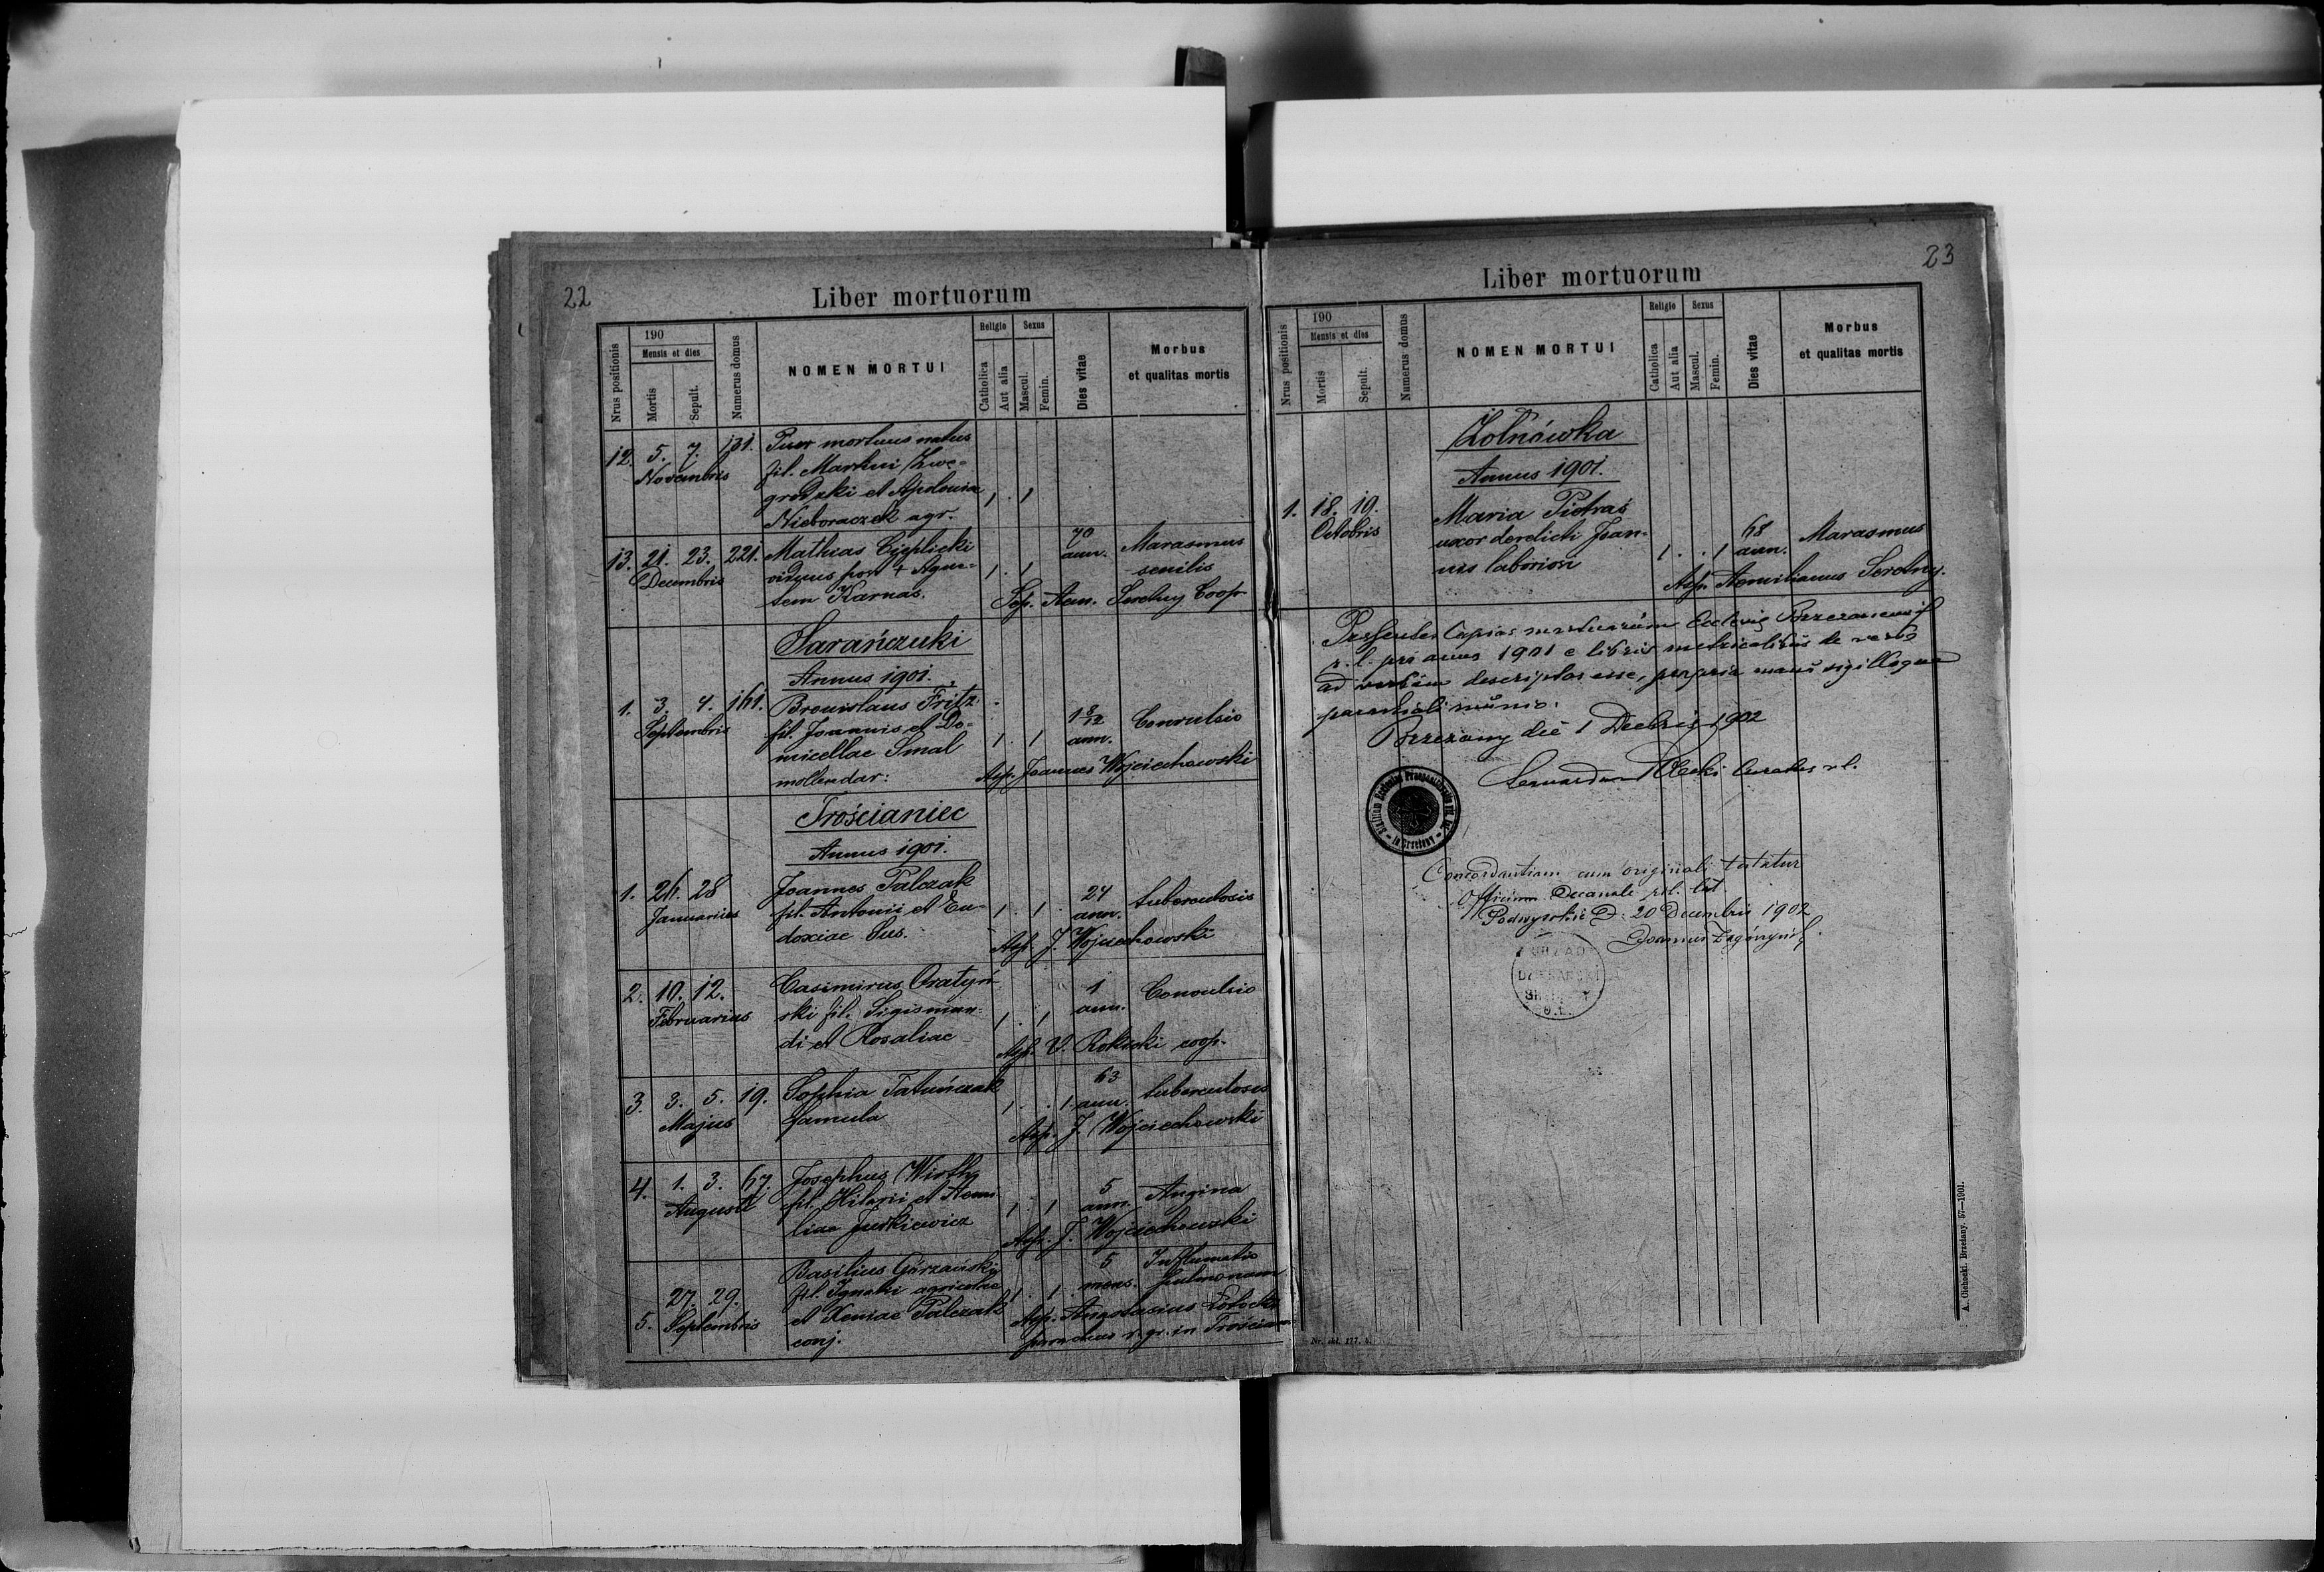 22
Liber mortuorum
Nrus positionis
190
Mensis et dies
Mortis
Sepult.
Numerus domus
NOMEN MORTUI
Religio
Catholica
Aut alia
Sexus
Mascul.
Femin.
Dies vitae
Morbus
et qualitas mortis
12. 5. 7. 131. Puer mortuus natus
Novembris fil. Martini Zwę-
grodzki et Apolonia 1 . 1
Nieboraczek agr.
13. 21. 23. 221. Mathias Cieplicki 70 Marasmus
Decembris viduus post + Agne- 1 . 1 ann. senilis
tem Karnas. Sep. Aem. Serdny Coop.
Sarańczuki
Annus 1901.
1. 3. 4. 161. Bronislaus Fritz
Septembris fil. Joannis et Do- 1 . 1 1 8/12 ann. Convulsio
micellae Smal
mollendar: Asp. Joannes Wojciechowski
Trościaniec
Annus 1901.
1. 26. 28 Joannes Palczak 24
Januarius fil. Antonii et Eu- 1 . 1 ann. tuberculosis
doxiae Sus. Asp. J. Wojciechowski
2. 10. 12. Casimirus Oratyń- 1 Convulsio
Februarius ski fil. Sigismun- 1 . 1 ann.
di et Rosaliae Asp. V. Rokicki coop.
3. 3. 5. 19. Sophia Tatuńczak 63
Majus famula 1 . . 1 ann. tuberculoses
Asp. J. Wojciechowski
4. 1. 3. 67. Josephus Wirthy 5
Augusti fil. Hilarii et Aemi- 1 . 1 ann. Angina
liae Jurkiewicz Asp. J. Wojciechowski
Basilius Górzański 5 Inflamatio
27. 29. fil. Ignatii agricolae 1 . 1 mens. pulmonum
5. Septembris et Xeniae Palczak Asp.
conj. parochus r. gr. in Trościaniec
23
Liber mortuorum
Nrus positionis
190
Mensis et dies
Mortis
Sepult.
Numerus domus
NOMEN MORTUI
Religio
Catholica
Aut alia
Sexus
Mascul.
Femin.
Dies vitae
Morbus
et qualitas mortis
Żołnówka
Annus 1901.
1. 18. 19. Maria Piotraś
Octobris uxor derelicti Joan- 1 . . 1 68 ann. Marasmus
nis laboriosi
Asp. Aemilianus Serdny.
Praesentes Copias mortuorum Ecclesiae Brzezanensis
r. l. pro anno 1901 e libris metricalibus de verbo
ad verbum descriptas esse, propria manu sigilloque
parochiali munio.
Brzezany die 1 Decbris 1902
Curatus r. l.
Concordantiam cum originali testatur
Officium Decanale rit. lat.
Podwysokie D. 20 Decembris 1902
Nr. 177.
A. Cichocki. Brzeżany. 57—1901.